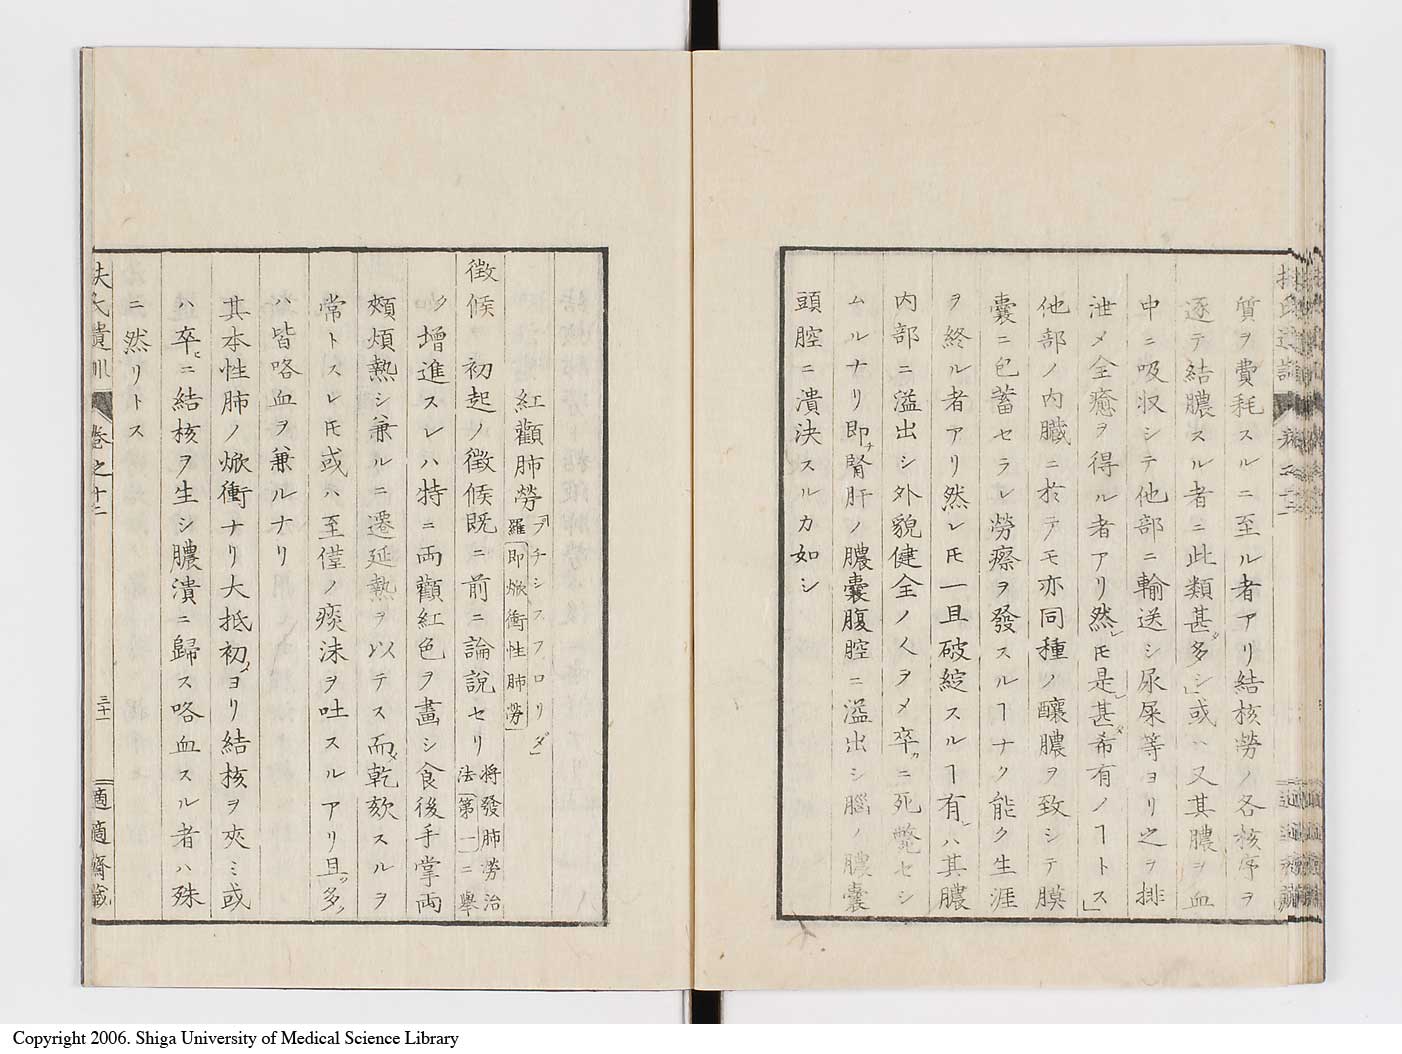 質ヲ費耗スルニ至ル者アリ結核勞ノ各核序ヲ
逐テ結膿スル者ニ此類甚ダ多シ」或ハ又其膿ヲ血
中ニ吸収シテ他部ニ輸送シ尿屎等ヨリ之ヲ排
泄メ全癒ヲ得ル者アリ然レ𪜈是レ甚ダ希有ノヿトス」
他部ノ内臓ニ於テモ亦同種ノ釀膿ヲ致シテ膜
囊ニ包蓄セラレ勞瘵ヲ發スルヿナク能ク生涯
ヲ終ル者アリ然レ𪜈一旦破綻スルヿ有レハ其膿
内部ニ溢出シ外貌健全ノ人ヲメ卒カニ死斃セシ
ムルナリ即チ腎肝ノ膿囊腹腔ニ溢出シ腦ノ膿囊
頭腔ニ潰決スルカ如シ
紅顴肺勞「フチシスフロリダ」羅即焮衝性肺勞
徴候 初起ノ徴候既ニ前ニ論説セリ將發肺勞治法第一ニ舉
ク增進スレハ特ニ両顴紅色ヲ畫シ食後手掌両
頰煩熱シ兼ルニ遷延熱ヲ以テス而乾欬スルヲ
常トスレ𪜈或ハ至僅ノ痰沫ヲ吐スルアリ且ツ多ク
ハ皆咯血ヲ兼ルナリ
其本性肺ノ焮衝ナリ大抵初メヨリ結核ヲ夾ミ或
ハ卒ニ結核ヲ生シ膿潰ニ歸ス咯血スル者ハ殊
ニ然リトス
扶氏遺訓 卷之十二 三十一 適適齋藏
Copyright 2006. Shiga University of Medical Science Library